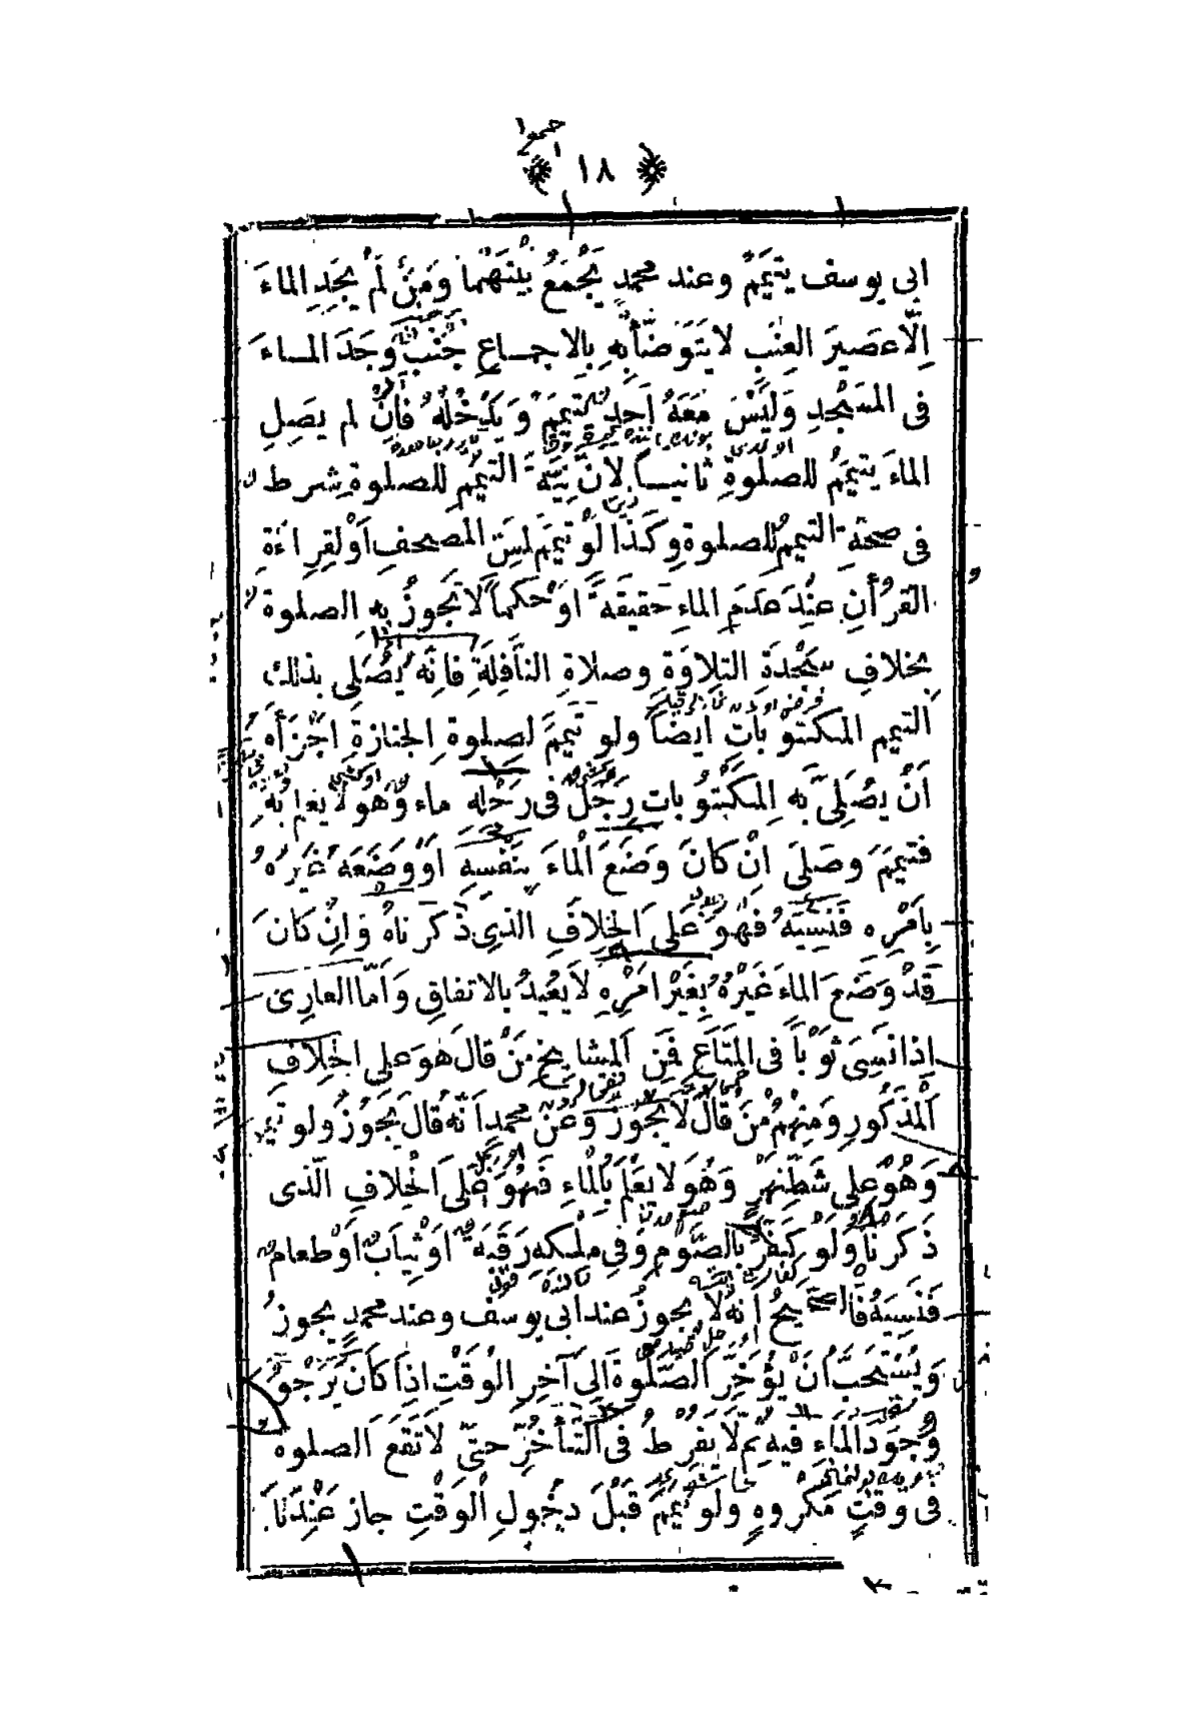 ١٨
ابى يوسف يتيَمَّمُ وعند محمدٍ يَجْمَعُ بَيْنَهُمَا وَمَنْ لَمْ يَجِدِ الماءَ
اِلَّا عَصيرَ العِنَبِ لا يَتَوَضَّأُ بِهِ بِالاجمـاعِ جُنُبٌ وَجَدَ المـاءَ
فى المَسْجِدِ وَلَيْسَ مَعَهُ اَحَدٌ تيمَّمَ وَيَدْخُلُهُ فَاِنْ لم يصَلِ
الماءَ يتيمَّمُ للصلوةِ ثانيـاً لانَّ نِيَّةَ التيمُّمِ للصلوةِ شرط
فى صحةِ التيمُّمِ للصلوةِ وكَذَا لَوْ تيمَّمَ لمسِّ المصحفِ اَوْ لقِرِاءَةِ
القرْأنِ عِنْدَ عَدَمِ الماءِ حقيقَةً اَوْ حكماً لا تَجُوزُ بِهِ الصلوة
بخلافِ سَجْدَةِ التِلاوَةِ وصلاةِ النَّافِلَةِ فاِنَّهُ يُصَلِى بذلك
التيممِ المكتوْباتِ اَيْضاً ولو تيمَّمَ لِصلوةِ الجنازةِ اَجْزَأَهُ
اَنْ يُصَلِىَّ بِهِ المكْتُوُباتِ رَجُلٌ فى رَحْلِه ماء وَهُو لا يَعلَمُ بِهِ
فتيمَّمَ وصَلَى اِنْ كانَ وَضَعَ الْماءَ بِنَفْسِهِ اَوْ وَضَعَهُ غَيْرُهُ
بِاَمْرِهِ فَنَسِيَهُ فَهُوَ عَلَى الخِلافِ الذِى ذَكرْناهُ وَاِنْ كانَ
قَدْ وَضَعَ الماءَ غَيْرُهُ بِغَيْرِ اَمْرِهِ لا يُعيدُ بالاتفاقِ وَاَمَّا العارِى
اِذا نَسِىَ ثَوْباً فى المَتَاعِ فَمِنَ المشايخِ مَنْ قال هُوَ على الخِلافِ
الْمَذْكُورِ وَمِنْهُمْ مَنْ قالَ لا يَجُوزُ وَعَنْ محمدٍ اَنَّهُ قالَ يَجُوزُ ولو تيمَّمَ
وَهُوَ على شَطِّ نهْرٍ وَهُوَ لا يَعْلَمُ بِالْماءِ فَهُوَ عَلَى الْخِلافِ الَّذى
ذَكَرْنا وَلَوْ كَفَّرَ بالصَّوْمِ وَفِى مِلْكِهِ رَقَبَةٌ اَوْ ثِيَابٌ اَوْ طعامٌ
فَنَسِيَهُ فَالصَّحيحُ اَنهُ لا يجوزُ عند ابى يوسُفَ وعند محمدٍ يجوزُ
وَيُسْتَحَبُّ اَنْ يُؤَخِّرَ الصَّلوةَ اِلىَ آخِرِ الوَقْتِ اِذَا كَانَ يَرْجُو
وُجوُدَ الْمَاءِ فيهِ ثمَّ لا يُفْرِطُ فى التَّأخِيرِ حتىّ لا تقَعَ الصلوة
فى وَقْتٍ مَكْروهٍ ولو تيمَّمَ قَبْلَ دخُولِ الْوَقْتِ جاز عِنْدَنا